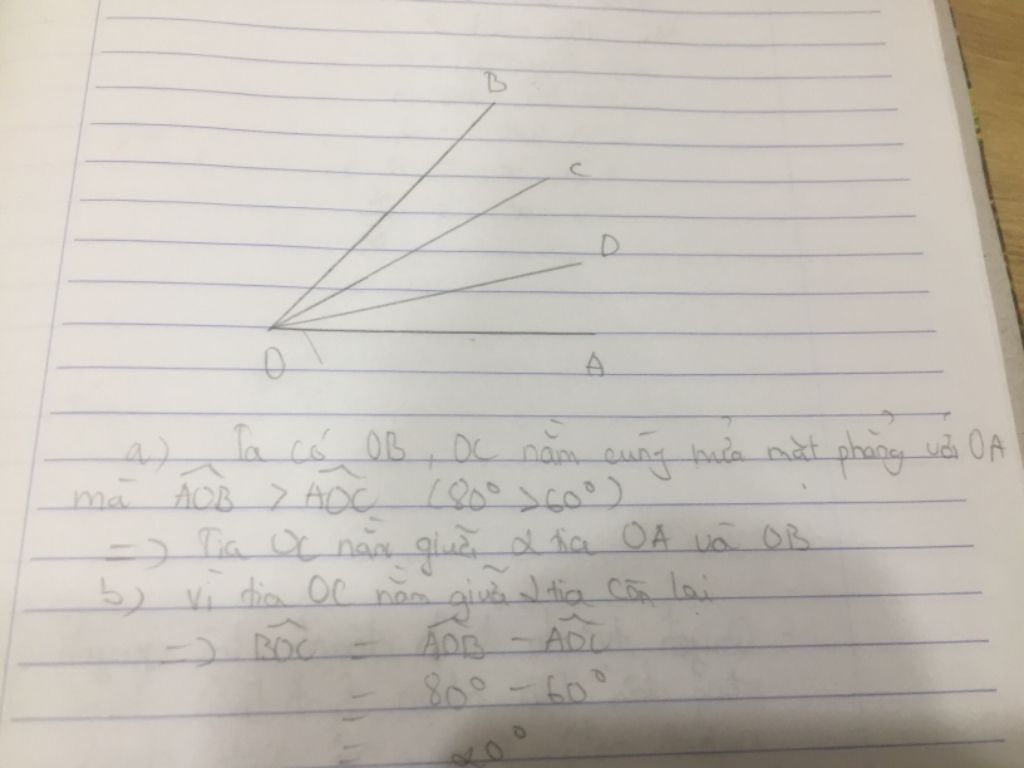 B
C
D
O
A
a) Ta có OB, OC nằm cùng nửa mặt phẳng với OA
mà AOB > AOC (80° > 60°)
=) Tia OC nằm giữa 2 tia OA và OB
b) Vì tia OC nằm giữa 2 tia còn lại
=) BOC = AOB - AOC
= 80° - 60°
= 20°